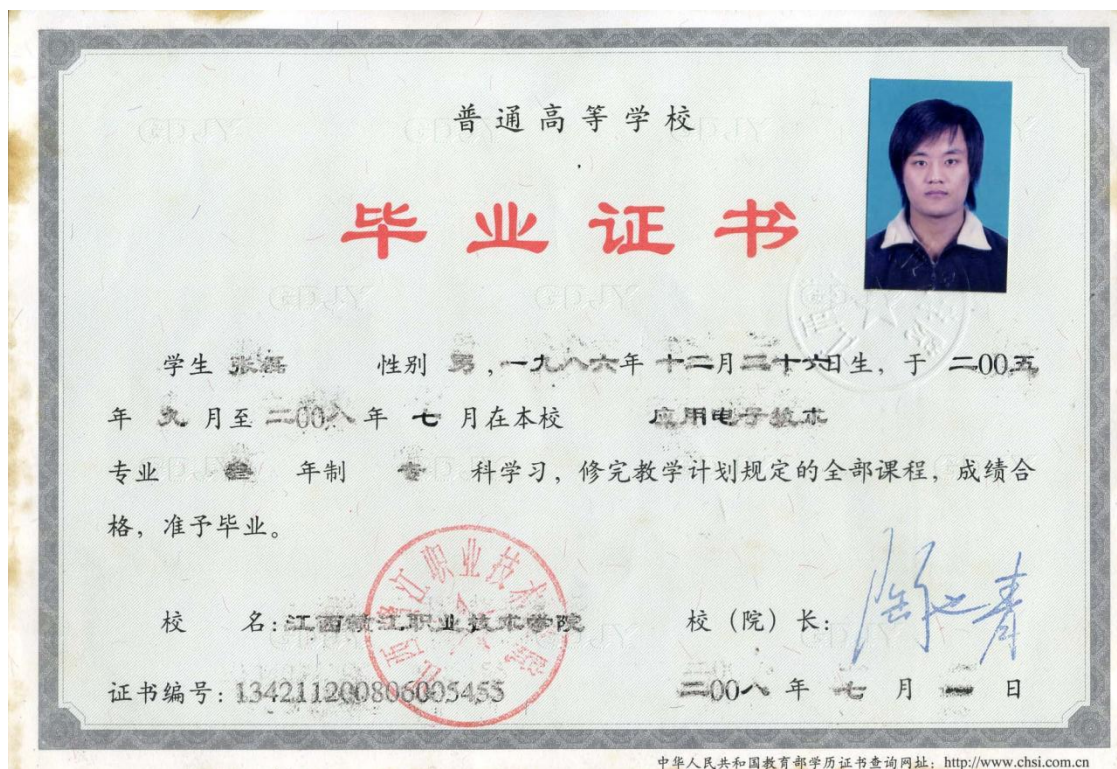 普通高等学校
毕业证书
学生 张磊 性别 男，一九八六年 十二月二十六日生，于 二00五
年 九 月至 二00八 年 七 月在本校 应用电子技术
专业 叁 年制 专 科学习，修完教学计划规定的全部课程，成绩合
格，准予毕业。
校 名：江西赣江职业技术学院 校（院）长：
证书编号：134211200806005455 二00八 年 七 月 一 日
中华人民共和国教育部学历证书查询网址：http://www.chsi.com.cn